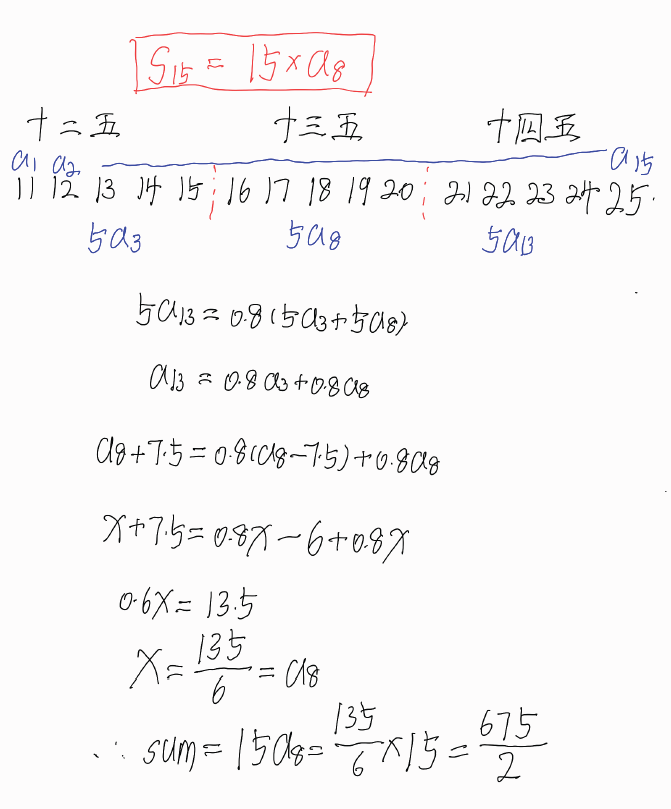 S₁₅ = 15×a₈
十二五 十三五 十四五
a₁ a₂ a₁₅
11 12 13 14 15 16 17 18 19 20 21 22 23 24 25.
5a₃ 5a₈ 5a₁₃
5a₁₃ = 0.8(5a₃+5a₈)
a₁₃ = 0.8a₃+0.8a₈
a₈+7.5=0.8(a₈-7.5)+0.8a₈
x+7.5=0.8x-6+0.8x
0.6x=13.5
x=135/6=a₈
∴ sum=15a₈=135/6×15=675/2